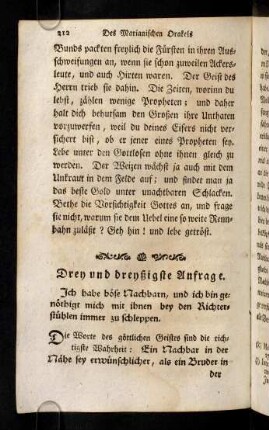 212 Des Marianischen Orakels
Bunds packten freylich die Fürsten in ihren Aus-
schweifungen an, wenn sie schon zuweilen Ackers-
leute, und auch Hirten waren. Der Geist des
Herrn trieb sie dahin. Die Zeiten, worinn du
lebst, zählen wenige Propheten; und daher
halt dich behutsam den Großen ihre Unthaten
vorzuwerfen, weil du deines Eifers nicht ver-
sichert bist, ob er jener eines Propheten sey.
Lebe unter den Gottlosen ohne ihnen gleich zu
werden. Der Weizen wächst ja auch mit dem
Unkraut in dem Felde auf; und findet man ja
das beste Gold unter unachtbaren Schlacken.
Bethe die Vorsichtigkeit Gottes an, und frage
sie nicht, warum sie dem Uebel eine so weite Renn-
bahn zuläßt? Geh hin! und lebe getröst.
Drey und dreyßigste Anfrage.
Ich habe böse Nachbarn, und ich bin ge-
nöthigt mich mit ihnen bey den Richter-
stühlen immer zu schleppen.
Die Worte des göttlichen Geistes sind die rich-
tigste Wahrheit: Ein Nachbar in der
Nähe sey erwünschlicher, als ein Bruder in
der